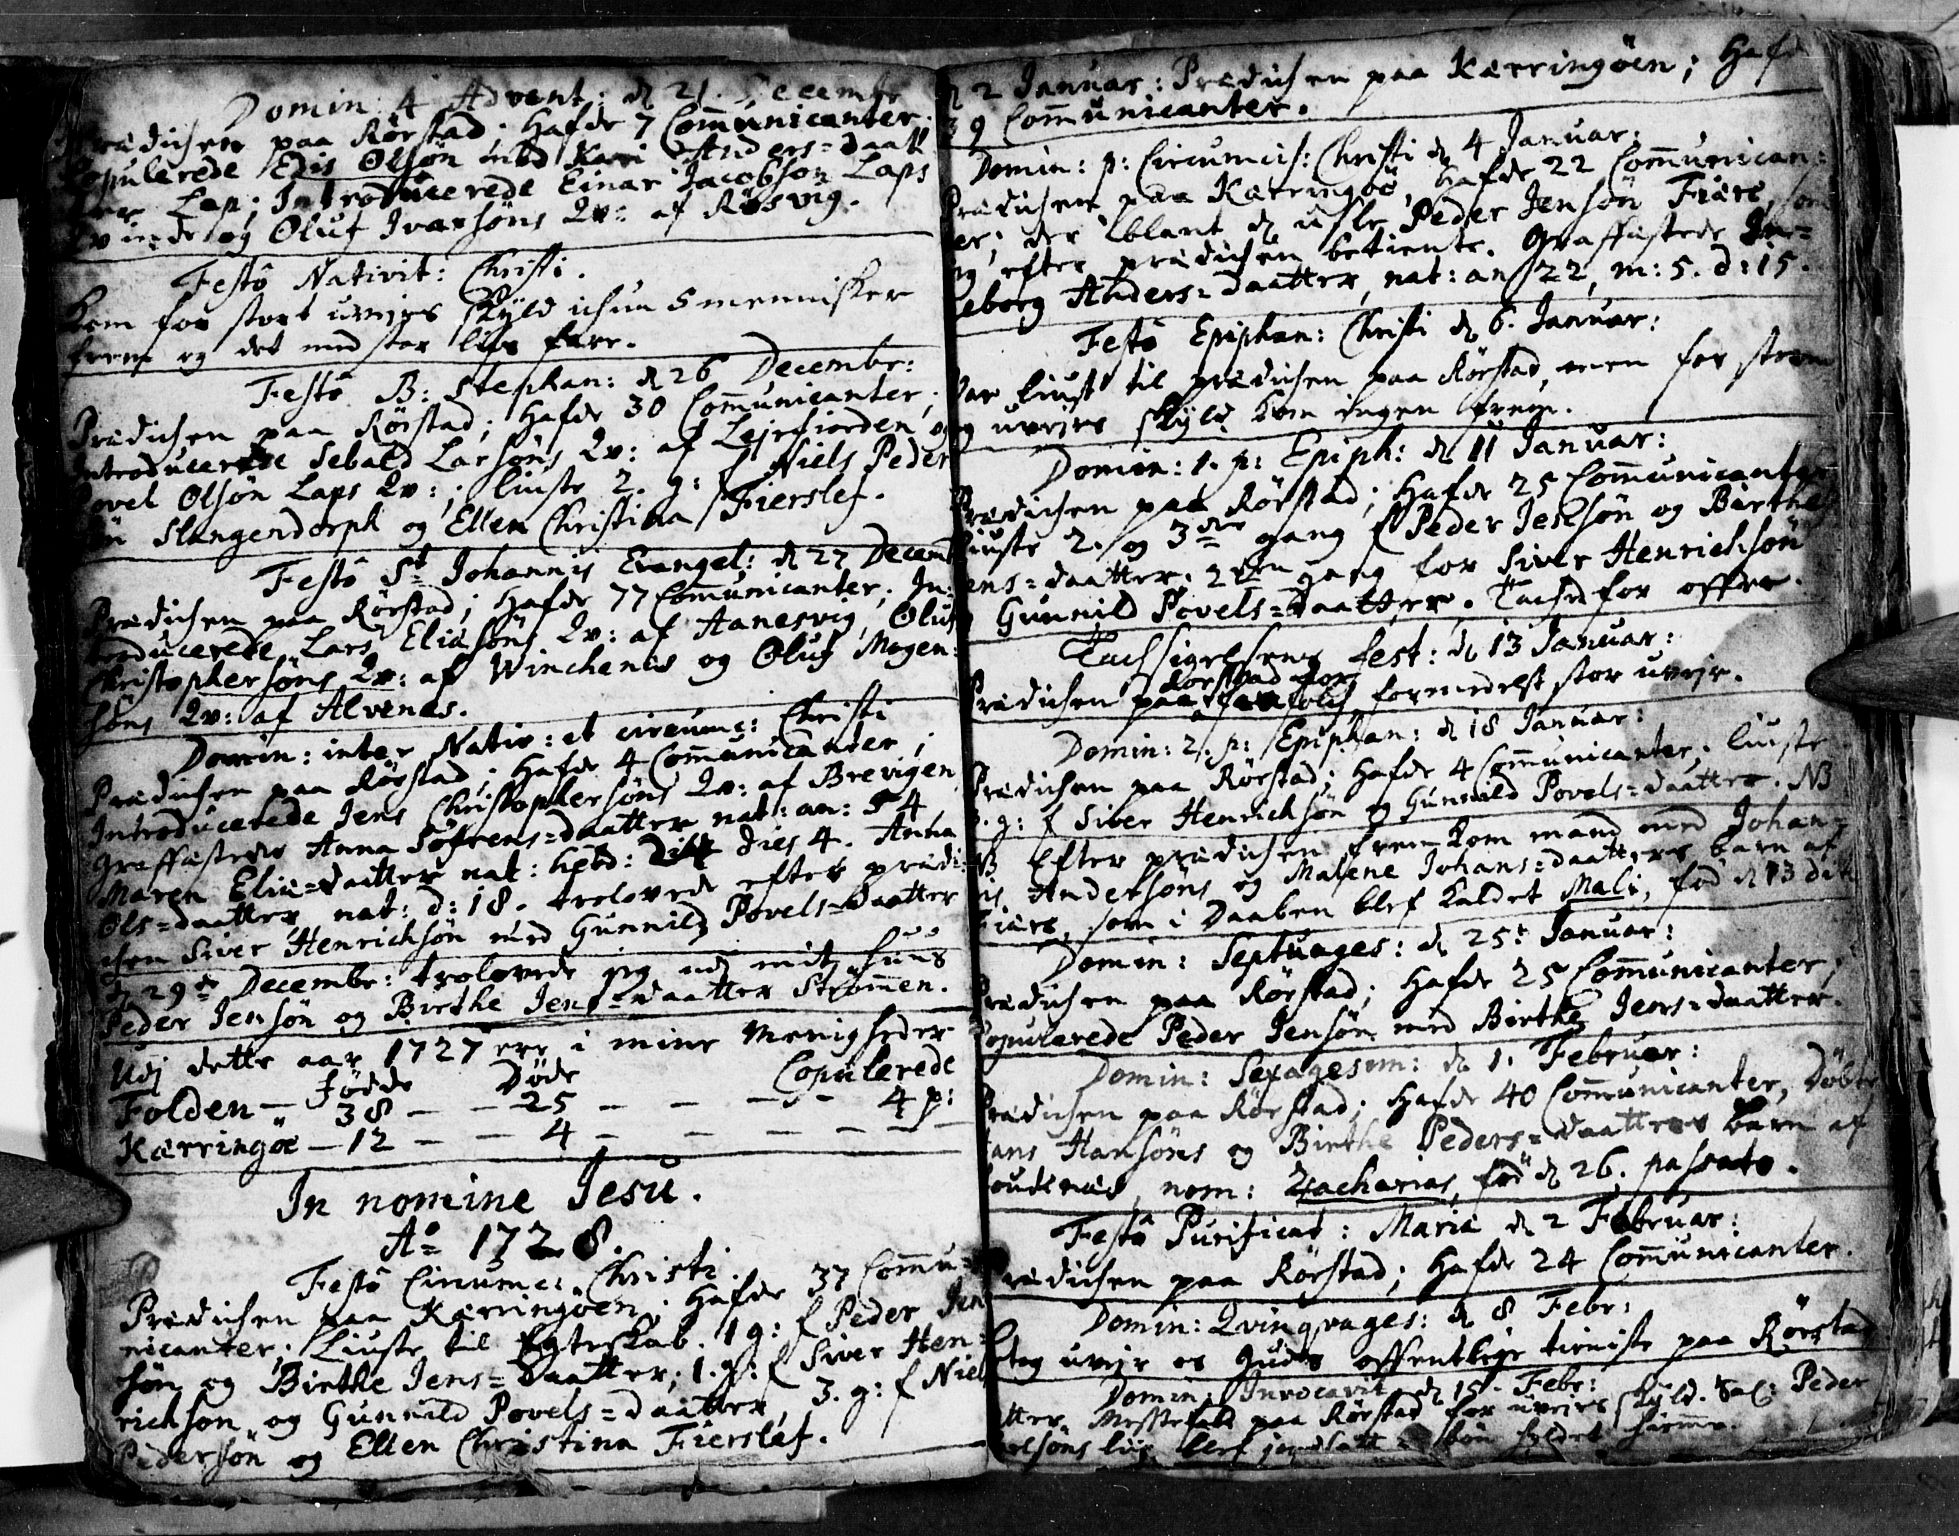 Domin: 4 Advent: d 21. Decembr
Prædichen paa Rörstad. Hafde 7 Com̄unicanter.
Copulerede Edis Olsön med Kari Anders=daatt
Lap; Introducerede Einar Jacobsøn Laps
Qvinde og Oluf Ivarsöns Qv: af Røsvig.
Festô Nativit: Christi.
Kom for stort uveyrs skyld ichun 5 mennisker
frem og det med stor lifs fare.
Festô B: Stephan: d 26 Decembr:
Prædichen paa Rörstad; Hafde 30 Com̄unicanter;
Introducerede Sebald Larsöns Qv: af Lejrfiorden og
Povel Olsön Laps Qv:; liuste 2. g: f Niels Peder
sön Slangendorph og Ellen Christina Fierslef.
Festô St Johannis Evangel: d 27 Decemb
Prædichen paa Rörstad; Hafde 77 Com̄unicanter, In=
troducerede Lars Eliasöns Qv: af Aanesvig, Oluf
Christophersöns Qv: af Winchenes og Oluf Mogen=
söns Qv: af Alvenes.
Domin: inter Nativ: et circumc: Christi
Prædichen paa Rörstad; Hafde 4 Com̄unicanter;
Introducerede Jens Christophersöns Qv: af Brevigen
Graffæstede Anna Söfrens=daatter nat: an: 54
Maren Elia=daatter nat: hebd: dies 4. Anna
Ols=daatter nat: d: 18. trolovede efter prædi:
chen Siver Henrichsön med Gunnild Povels=daatter
d 29de Decembr: trolovede sig udj mit huus
Peder Jensön og Birthe Jens=daatter Strømmen.
Udj dette aar 1727 ere i mine Menigheder
Fødde Døde Copulerede
Folden — 38 — — 25 — — — — 4 p:
Kærringöe — 12 — — 4 — — — — —
In nomine Jesu.
Ao 1728.
Festô Circumc: Christi
Prædichen paa Kærringöen; Hafde 37 Com̄u=
nicanter; Liuste til Egteskab. 1 g: f Peder Jen
sön og Birthe Jens=daatter; 1. g: f Siver Hen=
richson og Gunnild Povels=daatter, 3. g: f Niel
Pedersön og Ellen Christina Fierslef.
d 2 Januar: Prædichen paa Kærringöen; Hafde
39 Com̄unicanter.
Domin: p: Circumcis: Christi d 4 Januar:
Prædichen paa Kærringöe, Hafde 22 Com̄unican=
ter; der iblant d usle Peder Jensön Fiære, som
jeg efter prædichen betiente. Graffæstede Inge=
eborg Anders=daatter, nat: an 22, m: 5. d: 15.
Festô Epiphan: Christi d 6. Januar:
Var liust til prædichen paa Rörstad, men for storm
og uveyrs skyld kom ingen frem.
Domin: 1. p: Epiph: d 11 Januar:
Prædichen paa Rörstad; Hafde 25 Com̄unicanter
liuste 2. og 3die gang f Peder Jensön og Birthe
Jens=daatter. 2den gang for Siver Henrichsön
Gunnild Povels=daatter. Tachede for offer.
Tachsigelsens fest: d 13 Januar:
Prædichen paa Rörstad for faa folch formedelst stor uveyr.
Domin: 2. p: Epiphan: d 18 Januar:
Prædichen paa Rörstad; Hafde 4 Com̄unicanter, liuste
3. g: f Siver Henrichsön og Gunnild Povels=daatter. NB
NB Efter prædichen frem kom mand med Johan=
nis Andersöns og Malene Johans=daatters barn af
Fiære, som i Daaben blef kaldet Mali, fød d 13 dito
Domin: Septuages: d 25. Januar:
Prædichen paa Rörstad; Hafde 25 Com̄unicanter;
Copulerede Peder Jensön med Birthe Jens=daatter.
Domin: Sexagesem: d 1. Februar:
Prædichen paa Rörstad; Hafde 40 Com̄unicanter, Döbte
Hans Hansöns og Birthe Peders=daatters barn af
nom: Zacharias, fød d 26. passato.
Festô Purificat: Maria d 2 Februar:
Prædichen paa Rörstad; Hafde 24 Com̄unicanter.
Domin: Qvinqvages: d 8 Febr:
tog uveyr os Guds offentlige tieniste paa Rörstad
Domin: Invocavit d 15. Febr:
atter Messefald paa Rörstad for uveyrs skyld. Sal: Peder
liig blef jordsatt